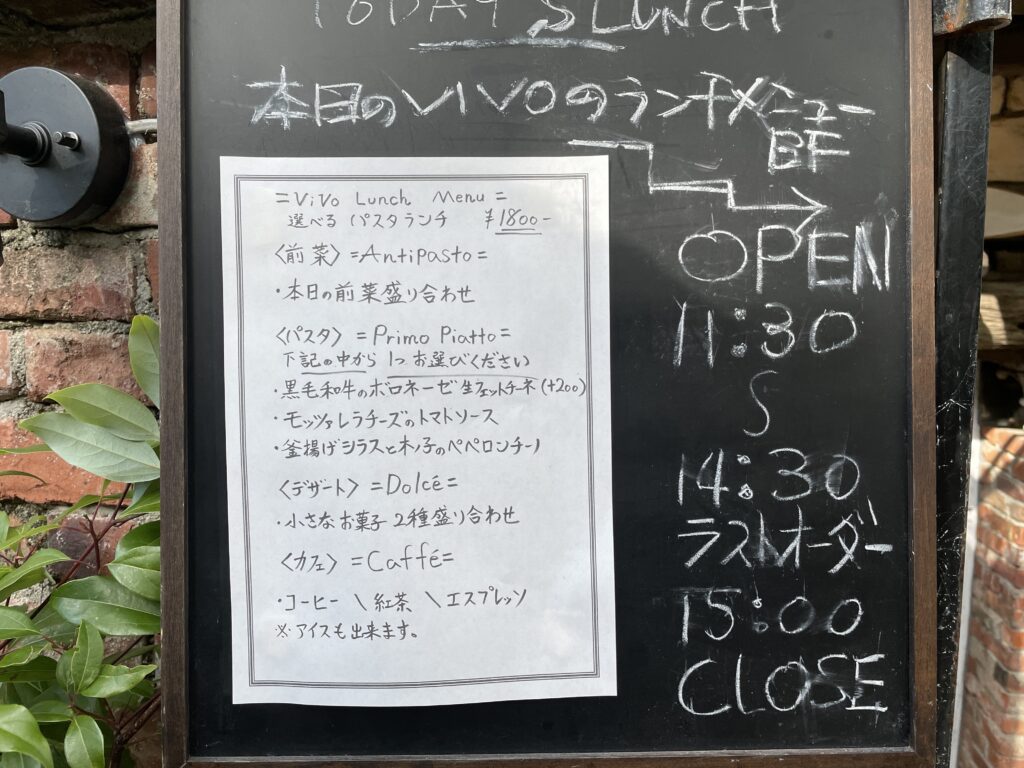 TODAY'S LUNCH
本日のVIVOのランチメニュー
BF
=ViVo Lunch Menu=
選べるパスタランチ ¥1800-
〈前菜〉=Antipasto=
・本日の前菜盛り合わせ
〈パスタ〉=Primo Piatto=
下記の中から1つお選びください
・黒毛和牛のボロネーゼ 生フェットチーネ(+200)
・モッツァレラチーズのトマトソース
・釜揚げシラスと木ノ子のペペロンチーノ
〈デザート〉=Dolcé=
・小さなお菓子 2種盛り合わせ
〈カフェ〉=Caffé=
・コーヒー \ 紅茶 \ エスプレッソ
※アイスも出来ます。
OPEN
11:30
〜
14:30
ラストオーダー
15:00
CLOSE